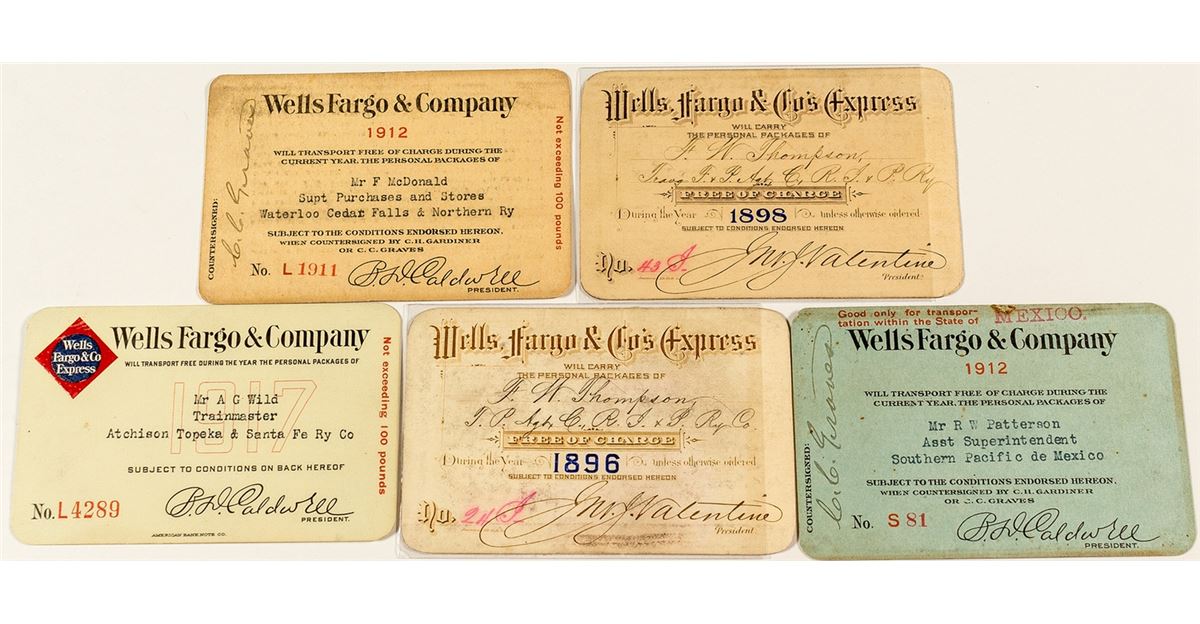 Wells Fargo & Company
1912
WILL TRANSPORT FREE OF CHARGE DURING THE
CURRENT YEAR, THE PERSONAL PACKAGES OF
Mr F McDonald
Supt Purchases and Stores
Waterloo Cedar Falls & Northern Ry
SUBJECT TO THE CONDITIONS ENDORSED HEREON,
WHEN COUNTERSIGNED BY C.H. GARDINER
OR C.C. GRAVES
No. L 1911
B.D. Caldwell
PRESIDENT.
COUNTERSIGNED:
C. C. Graves
Not exceeding 100 pounds
Wells, Fargo & Co's Express
WILL CARRY
THE PERSONAL PACKAGES OF
F. W. Thompson,
F. & P. Agt. C. R. I. & P. Ry
FREE OF CHARGE
During the Year 1898 unless otherwise ordered
SUBJECT TO CONDITIONS ENDORSED HEREON.
No. 43
Jno. J. Valentine
President.
Wells
Fargo & Co
Express
Wells Fargo & Company
WILL TRANSPORT FREE DURING THE YEAR THE PERSONAL PACKAGES OF
1917
Mr A G Wild
Trainmaster
Atchison Topeka & Santa Fe Ry Co
SUBJECT TO CONDITIONS ON BACK HEREOF
No. L4289
B.D. Caldwell
PRESIDENT.
AMERICAN BANK NOTE CO.
Not exceeding 100 pounds
Wells, Fargo & Co's Express
WILL CARRY
THE PERSONAL PACKAGES OF
F. W. Thompson,
F. P. Agt. C. R. I. & P. Ry Co
FREE OF CHARGE
During the Year 1896 unless otherwise ordered
SUBJECT TO CONDITIONS ENDORSED HEREON
No. 24
Jno. J. Valentine
President.
Good only for transpor-
tation within the State of MEXICO.
Wells Fargo & Company
1912
WILL TRANSPORT FREE OF CHARGE DURING THE
CURRENT YEAR, THE PERSONAL PACKAGES OF
Mr R W Patterson
Asst Superintendent
Southern Pacific de Mexico
SUBJECT TO THE CONDITIONS ENDORSED HEREON,
WHEN COUNTERSIGNED BY C.H. GARDINER
OR C.C. GRAVES
No. S 81
B.D. Caldwell
PRESIDENT.
COUNTERSIGNED:
C. C. Graves